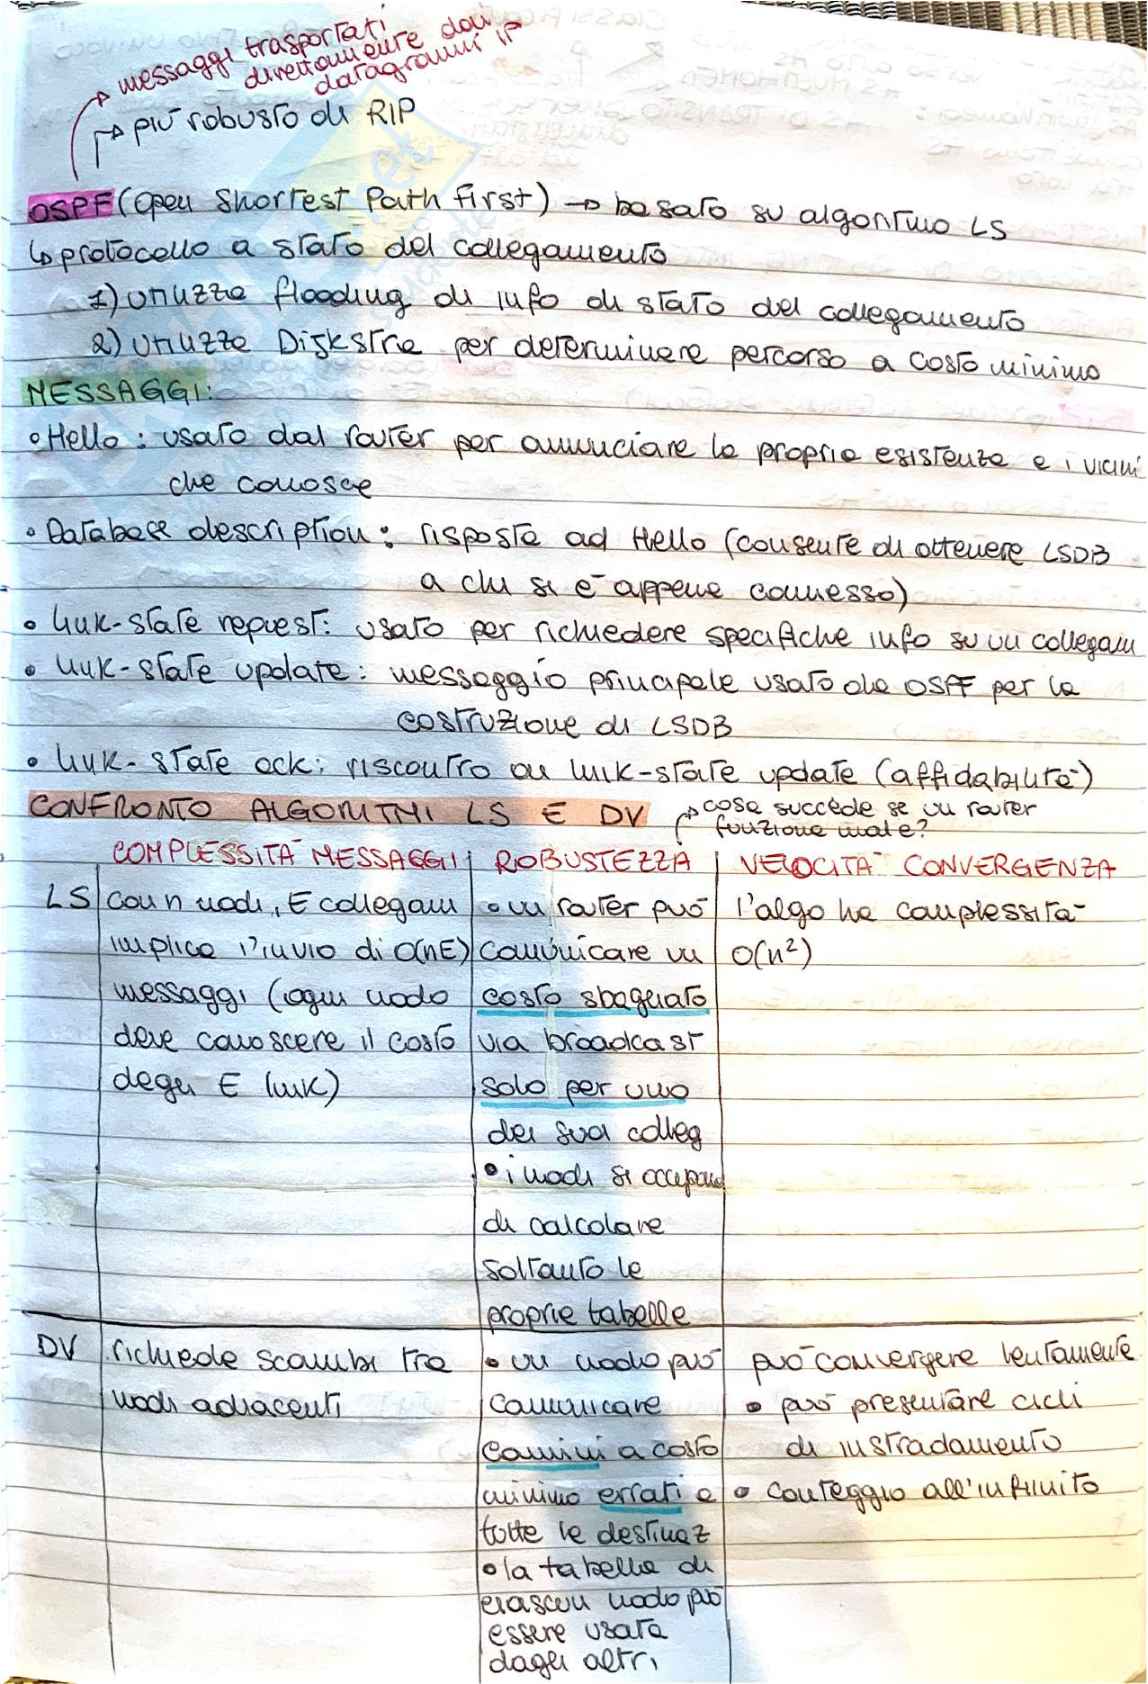 messaggi trasportati
direttamente dai
datagrammi IP
più robusto di RIP
OSPF (Open Shortest Path First) → basato su algoritmo LS
↳ protocollo a stato del collegamento
1) utilizza flooding di info di stato del collegamento
2) utilizza Dijkstra per determinare percorso a costo minimo
MESSAGGI:
• Hello: usato dal router per annunciare la propria esistenza e i vicini
che conosce
• Database description: risposta ad Hello (consente di ottenere LSDB
a chi si è appena connesso)
• link-state request: usato per richiedere specifiche info su un collegam
• link-state update: messaggio principale usato da OSPF per la
costruzione di LSDB
• link-state ack: riscontro a link-state update (affidabilità)
CONFRONTO ALGORITMI LS E DV
cosa succede se un router
funziona male?
COMPLESSITÀ MESSAGGI | ROBUSTEZZA | VELOCITÀ CONVERGENZA
LS | con n nodi, E collegam | • un router può | l'algo ha complessità
implica l'invio di O(nE) | comunicare un | O(n²)
messaggi (ogni nodo | costo sbagliato
deve conoscere il costo | via broadcast
degli E link) | solo per uno
dei suoi colleg
• i nodi si occupano
di calcolare
soltanto le
proprie tabelle
DV | richiede scambi tra | • un nodo può | può convergere lentamente
nodi adiacenti | comunicare | • può presentare cicli
cammini a costo | di instradamento
minimo errati a | • conteggio all'infinito
tutte le destinaz
• la tabella di
ciascun nodo può
essere usata
dagli altri